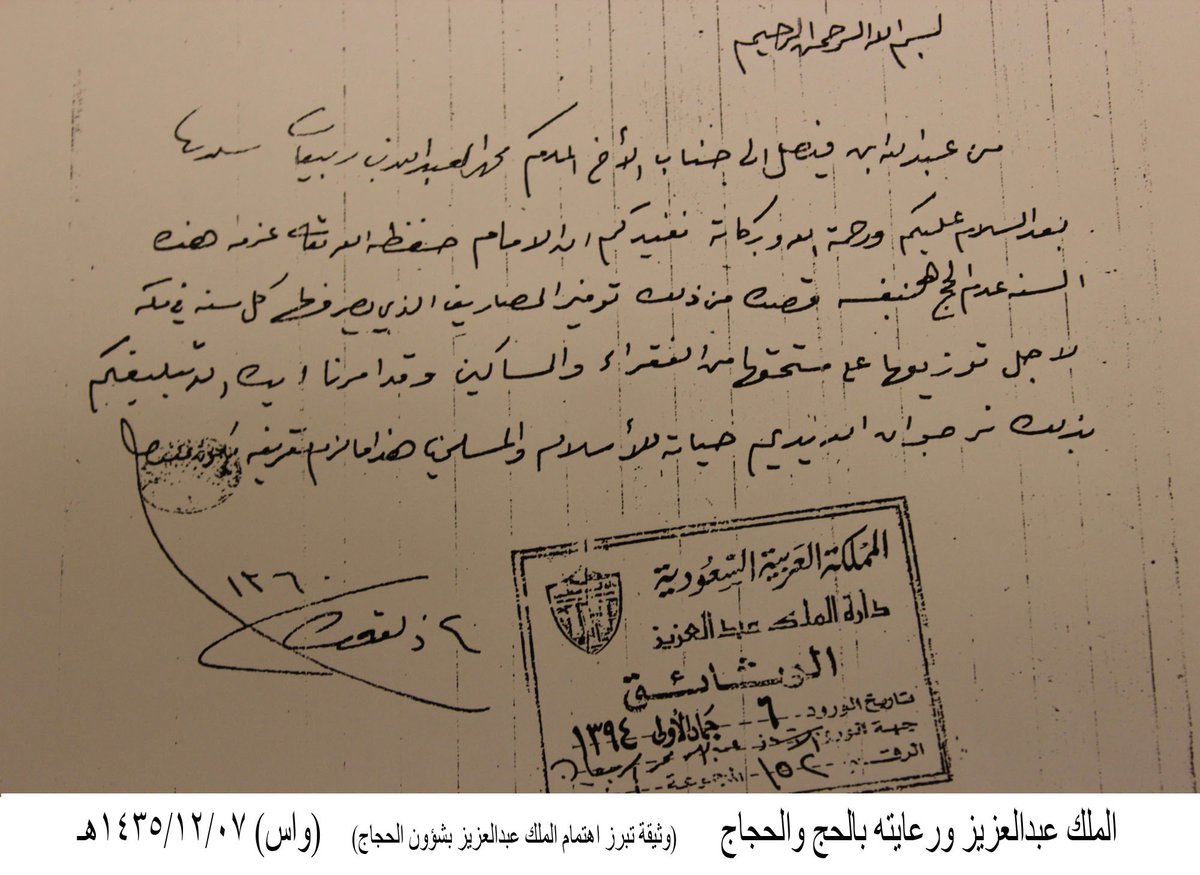 بسم الله الرحمن الرحيم
من عبدالله ابن فيصل الى جناب الأخ المكرم محمد العبدالله بن ربيعان سلمه
بعد السلام عليكم ورحمة الله وبركاته نفيدكم ان الامام حفظه الله تعالى عزم هذه
السنه عدم الحج بنفسه قصده من ذلك توفير المصاريف الذي يصرفها كل سنه في مكه
لاجل توزيعها على مستحقها من الفقراء والمساكين وقد امرنا ايده الله تبليغكم
بذلك نرجو ان الله يديم حياته للأسلام والمسلمين هذا ما لزم تعريفه
١٣٦٠
٢ ذلقعده
المملكة العربية السعودية
دارة الملك عبد العزيز
الوثائق
تاريخ الورود ٦ جماد الأولى ١٣٩٤
جهة الورود الاستاذ
الرقم ١٥٢ المجموعة
الملك عبدالعزيز ورعايته بالحج والحجاج (وثيقة تبرز اهتمام الملك عبدالعزيز بشؤون الحجاج) (واس) ١٤٣٥/١٢/٠٧هـ